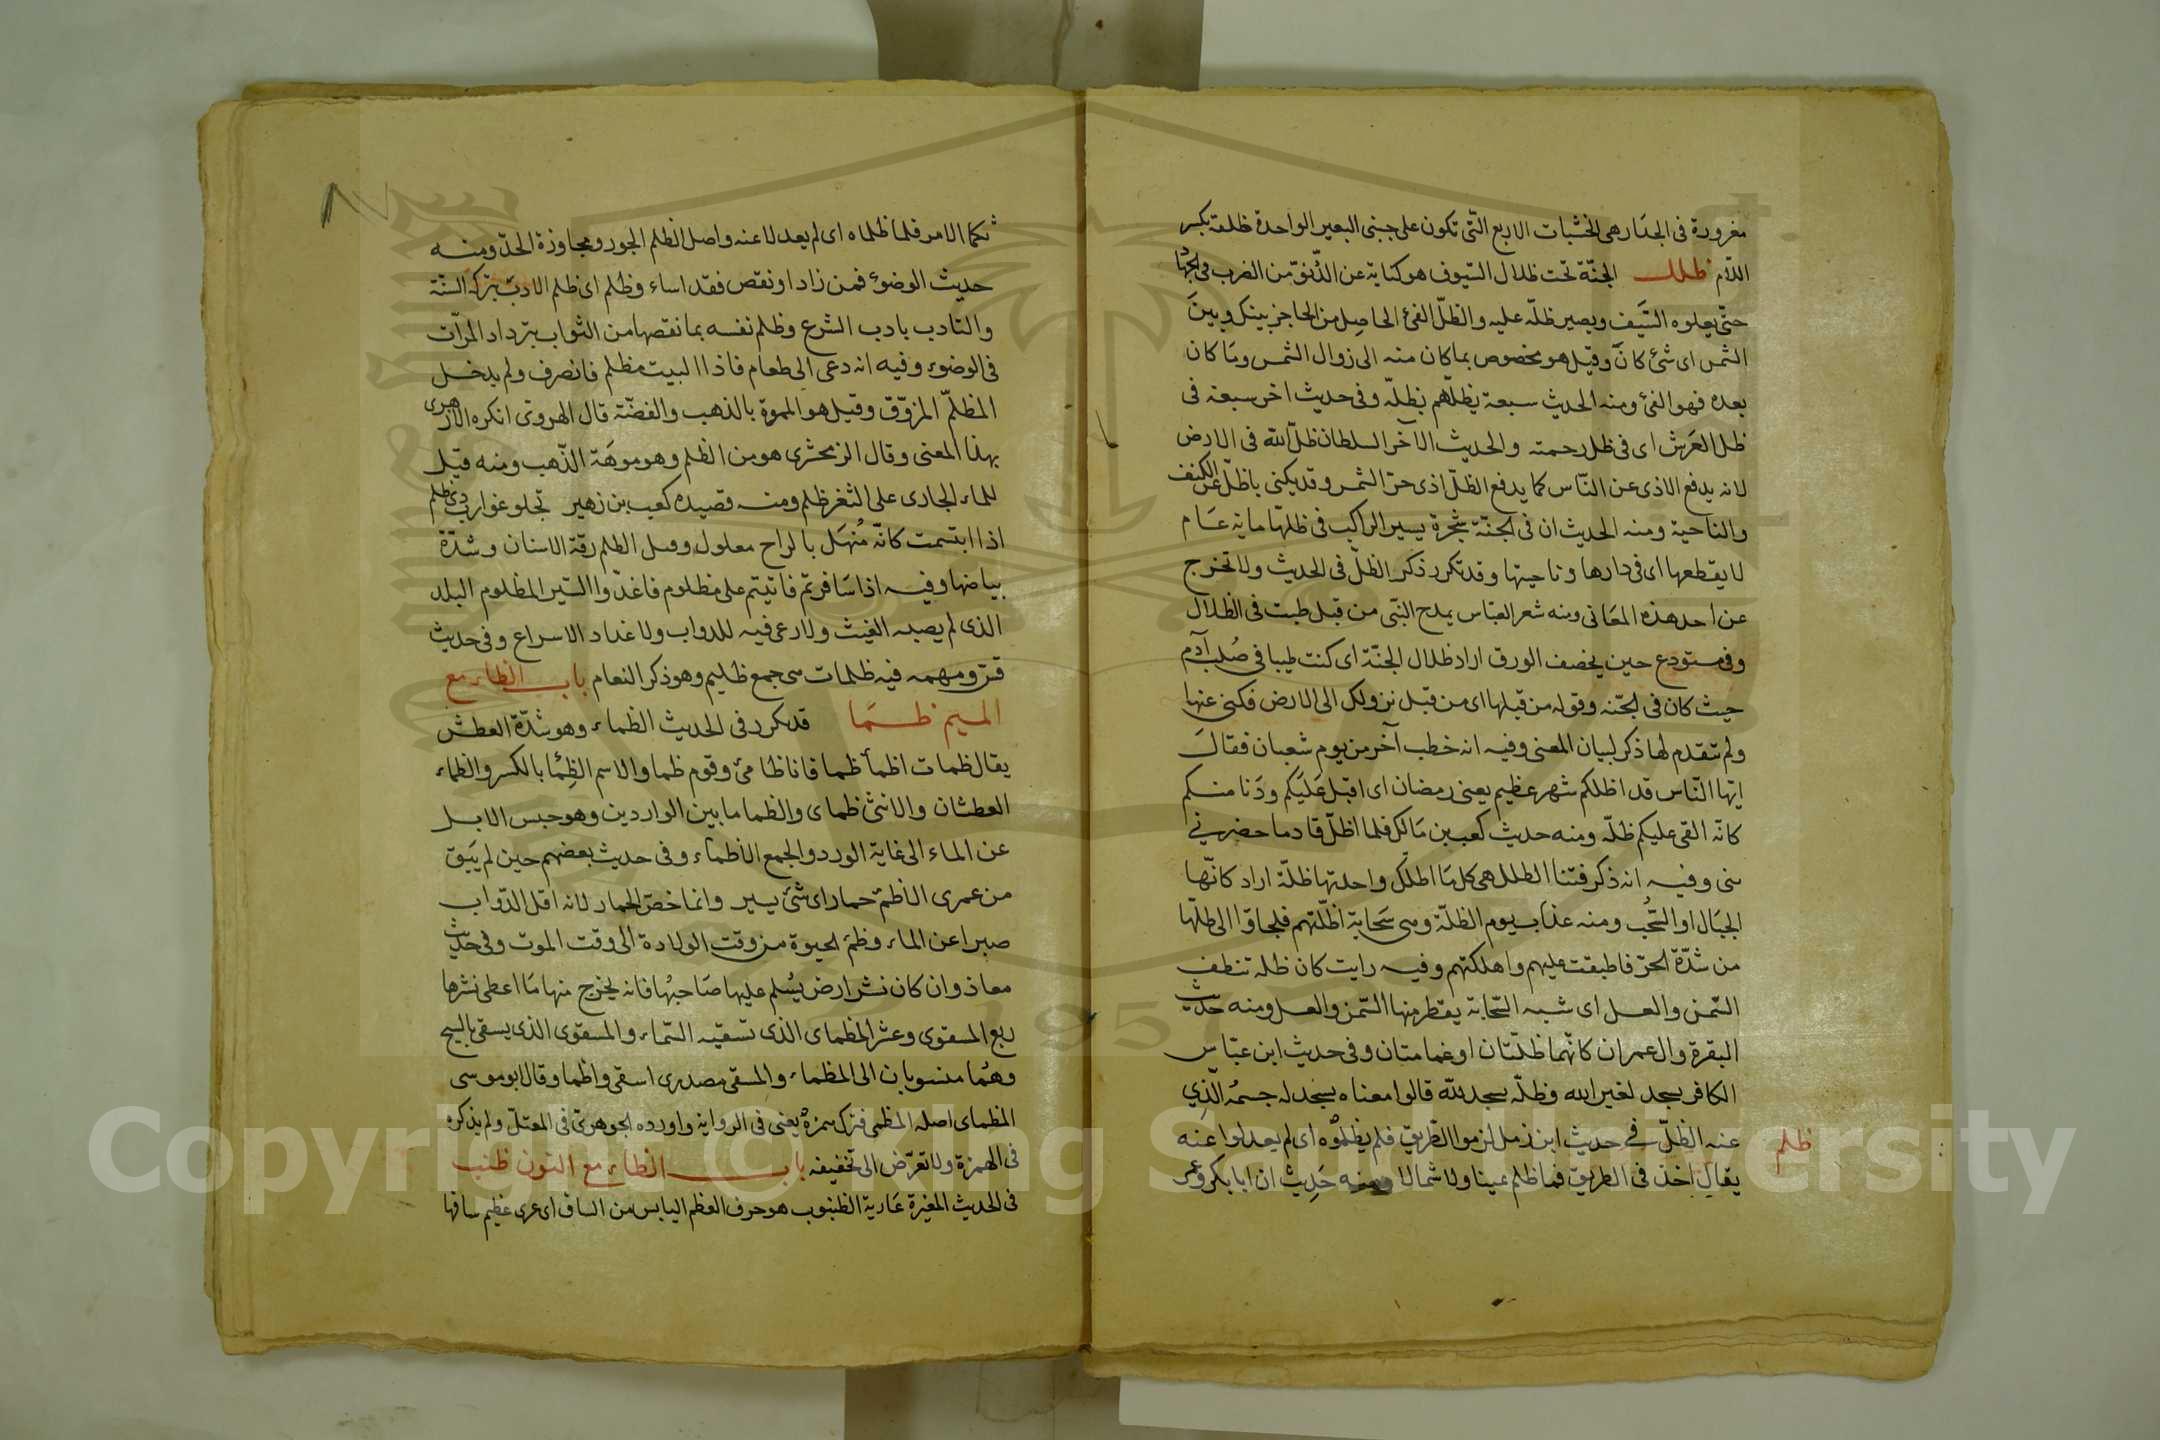 مغرورة فى الجدار هى الخشبات الاربع التّى تكون على جنبى البعير الواحدة ظلعة بكسر
اللام ظلل الجنّة تحت ظلال السّيوف هو كناية عن الدّنوّ من الضرب فى الجهاد
حتّى يعلوه السَّيف ويصير ظلّه عليه والظلّ الفئ الحاصِل من الحاجز بينك وبينَ
الشمس اى شئ كانَ وقيل هو مخصوص بما كان منه الى زوال الشمس ومَا كان
بعده فهو الفئ ومنه الحديث سبعة يظلّهم بظلّه وفى حديث اخر سبعة فى
ظل العَرش اى فى ظل رحمته والحديث الآخر السلطان ظلّ الله فى الارض
لانه يدفع الاذى عن النّاس كما يدفع الظلّ اذى حرّ الشمس وقد يكنى باظلّ عن الكنف
والناحية ومنه الحديث ان فى الجنّة شجرة يسير الراكب فى ظلّها ماية عَام
لا يقطعها اى فى دارها وناحيتها وقد تكرر ذكر الظلّ فى الحديث ولا تخرج
عن احد هذه المعَانى ومنه شعر العبّاس يمدح النّبى من قبل طبت فى الظلال
وفى مستودع حين يخصف الورق اراد ظلال الجنّة اى كنت طيبا فى صُلب آدم
حيث كان فى الجنّه وقوله من قبلها اى من قبل نزولك الى الارض فكنى عنها
ولم تتقدم لها ذكر لبيان المعنى وفيه انه خطب آخر من يوم شعبان فقالَ
ايّها النّاس قد اظلكم شهر عظيم يعنى رمضان اى اقبل عَلَيكم ودَنا منكم
كانّه القى عليكم ظلّه ومنه حديث كعب بن مَالك فلما اظلّ قادما حضرنى
بنى وفيه انه ذكر فتنا الظلل هى كل مَا اظلّك واحدتها ظلّة اراد كانّها
الجبَال او السّحُب ومنه عذاب يوم الظلّة وهى سَحابة اظلّتهم فلجاوا الى ظلّها
من شدّة الحرّ فاطبقت عليهم واهلكتهم وفيه رايت كان ظله تنطف
السّمن والعسل اى شبه السّحابة يقطر منها السّمن والعسل ومنه حديث
البقرة وال عمران كانّهما ظلّتان او غمامتان وفى حديث ابن عبّاس
الكافر يسجد لغير الله وظلّه يسجد لله قالوا معناه يسجد له جسمُه الّذِي
عنه الظلّ فى حديث ابن زمل لزموا الطّريق فلم يظلمُوه اى لم يعدلوا عنه
ظلم
يقال اخذ فى الطريق فما ظلم يمينا ولا شمالا ومنه حَدِيث ان ابا بكر وعمر
ثكما الامر فلما ظلماه اى لم يعدلا عنه واصل الظلم الجور ومجاوزة الحدّ ومنه
حديث الوضوء فمن زاد او نقص فقد اساء وظلم اى ظلم الادب بتركه السّنّة
والتادب بادب الشرع وظلم نفسه بما نقصها من الثواب بترداد المرّات
فى الوضوء وفيه انه دعى الى طعام فاذا البيت مظلم فانصرف ولم يدخل
المظلّم المزوّق وقيل هو المموة بالذهب والفضّة قال الهروىّ انكره الازهرى
بهذا المعنى وقال الزمخشرى هو من الظلم وهو موهَة الذّهب ومنه قيل
للماء الجارى على الثغر ظلم ومنه قصيده كعب بن زهير تجلو غوارب ذى ظلم
اذا ابتسمت كانّه مُنهَل بالراح معلول وقيل الظلم رقّة الاسنان وشدّة
بياضها وفيه اذا سَافرتم فاتيتم على مظلوم فاغذّوا السّير المظلوم البلد
الذى لم يصبه الغيث ولا رعى فيه للدواب ولا غذاد الاسراع وفى حديث
قسّ ومهمه فيه ظلمات هى جمع ظليم وهو ذكر النعام باب الظاء مع
الميم ظمَا قد تكرر فى الحديث الظماء وهو شدّة العطش
يقال ظمات اظمأ ظما فانا ظامئ وقوم ظما والاسم الظِمُا بالكسر والظماء
العطشان والانثى ظماى والظما ما بين الواردين وهو حبس الابل
عن الماء الى غاية الورد والجمع الاظماء وفى حديث بعضهم حين لم يَبق
من عمرى الاظمئ حمار اى شئ يسير وانما خصّ الحمار لانه اقل الدّواب
صبرا عن الماء وظمئ الحيوة من وقت الولادة الى وقت الموت وفى حديث
معاذ وان كان نشر ارض يُسلم عليها صَاحبُها فانه يخرج منها مَا اعطى نشرها
ربع المسقوى وعشر المظماى الذى تسقيه السّماء والمسقوى الذى يسقى بالسيح
وهُما منسوبان الى المظماء والمسقى مصدرى اسقى واظما وقال ابو موسى
المظماى اصله المظمى فترك همزهُ يعنى فى الرواية واورده الجوهرىّ فى المعتلّ ولم يذكره
فى الهمزة ولا تعرّض الى تخفيفه باب الظاء مع النون ظنب
فى الحديث المغيرة عَارية الظنبوب هو حرف العظم اليابس من الساق اى عرى عظيم ساقها
Copyright © King Saud University
1957